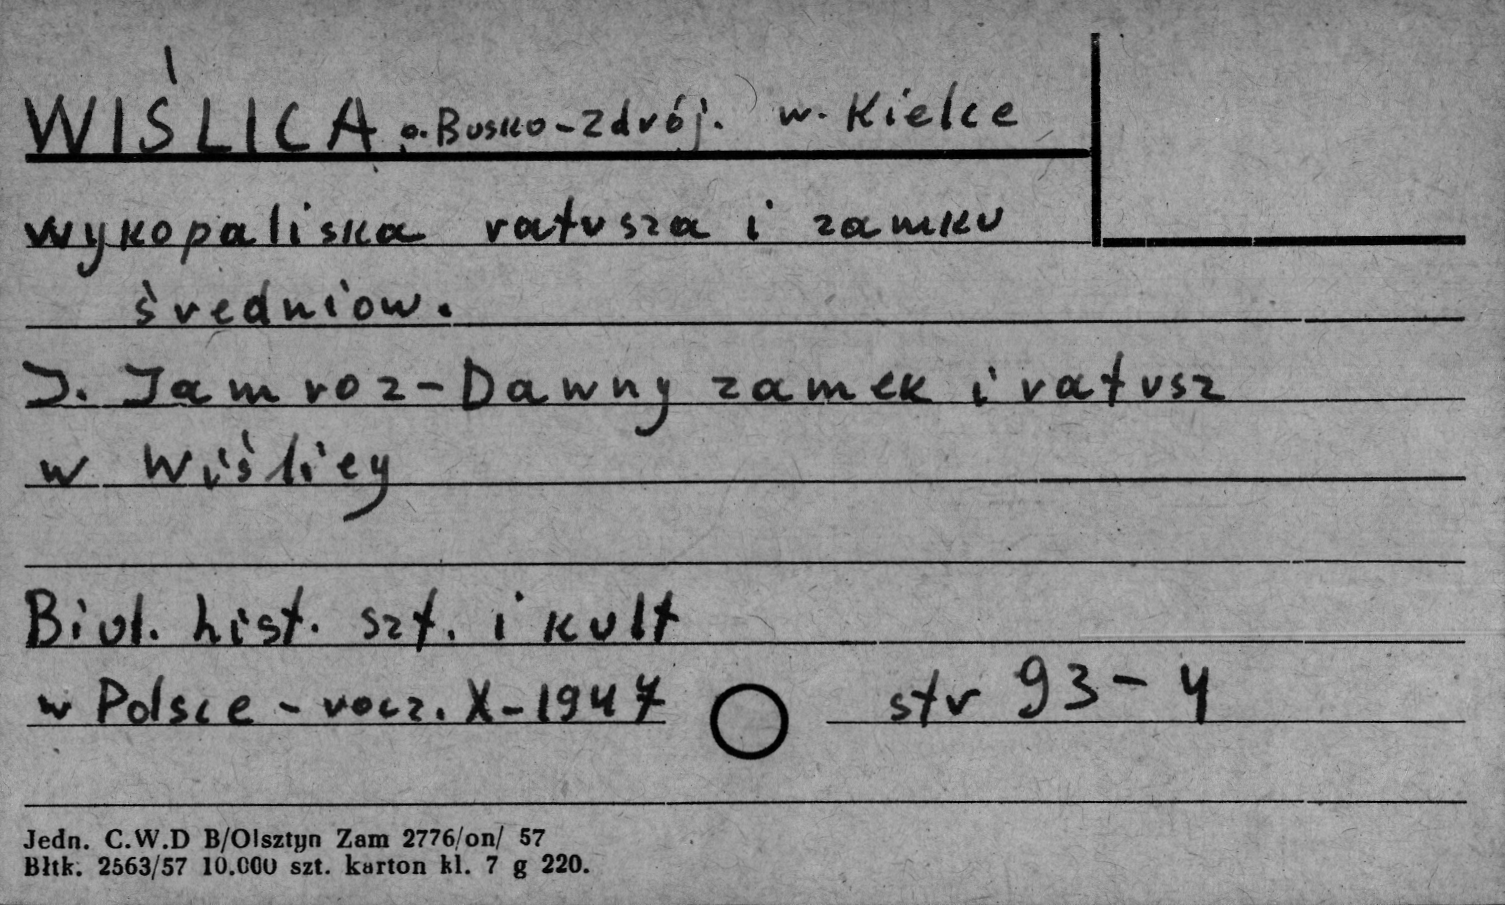 WIŚLICA p. Busko-Zdrój. w. Kielce
wykopaliska ratusza i zamku
średniow.
J. Jamroz - Dawny zamek i ratusz
w Wiślicy
Biul. hist. szt. i kult
w Polsce - rocz. X - 1947 str 93-4
Jedn. C.W.D B/Olsztyn Zam 2776/on/ 57
Błtk. 2563/57 10.000 szt. karton kl. 7 g 220.